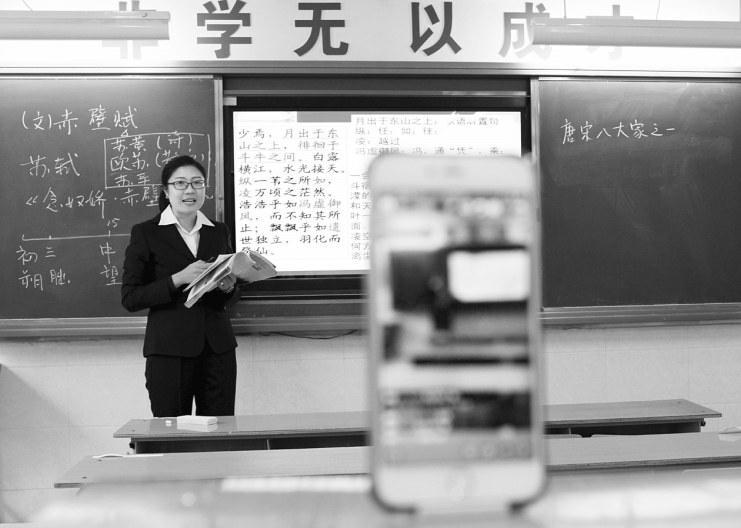 非学无以成才
(文)赤壁赋
苏黄(诗)
欧苏
苏辛
苏轼
《念奴娇·赤壁
15
初 三 中
朔 朏 望
少焉，月出于东
山之上，徘徊于
斗牛之间。白露
横江，水光接天。
纵一苇之所如，
凌万顷之茫然。
浩浩乎如冯虚御
风，而不知其所
止；飘飘乎如遗
世独立，羽化而
登仙。
月出于东山之上：状语后置句
纵：任；如：往；
凌：越过
唐宋八大家之一